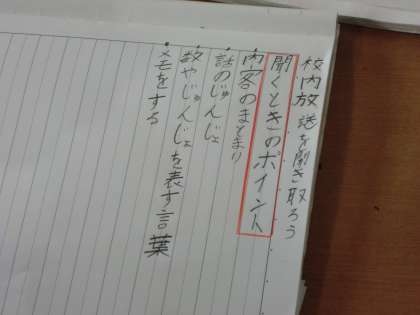 校内放送を聞き取ろう
聞くときのポイント
・内容のまとまり
・話のじゅんじょ
・数やじゅんじょを表す言葉
・メモをする